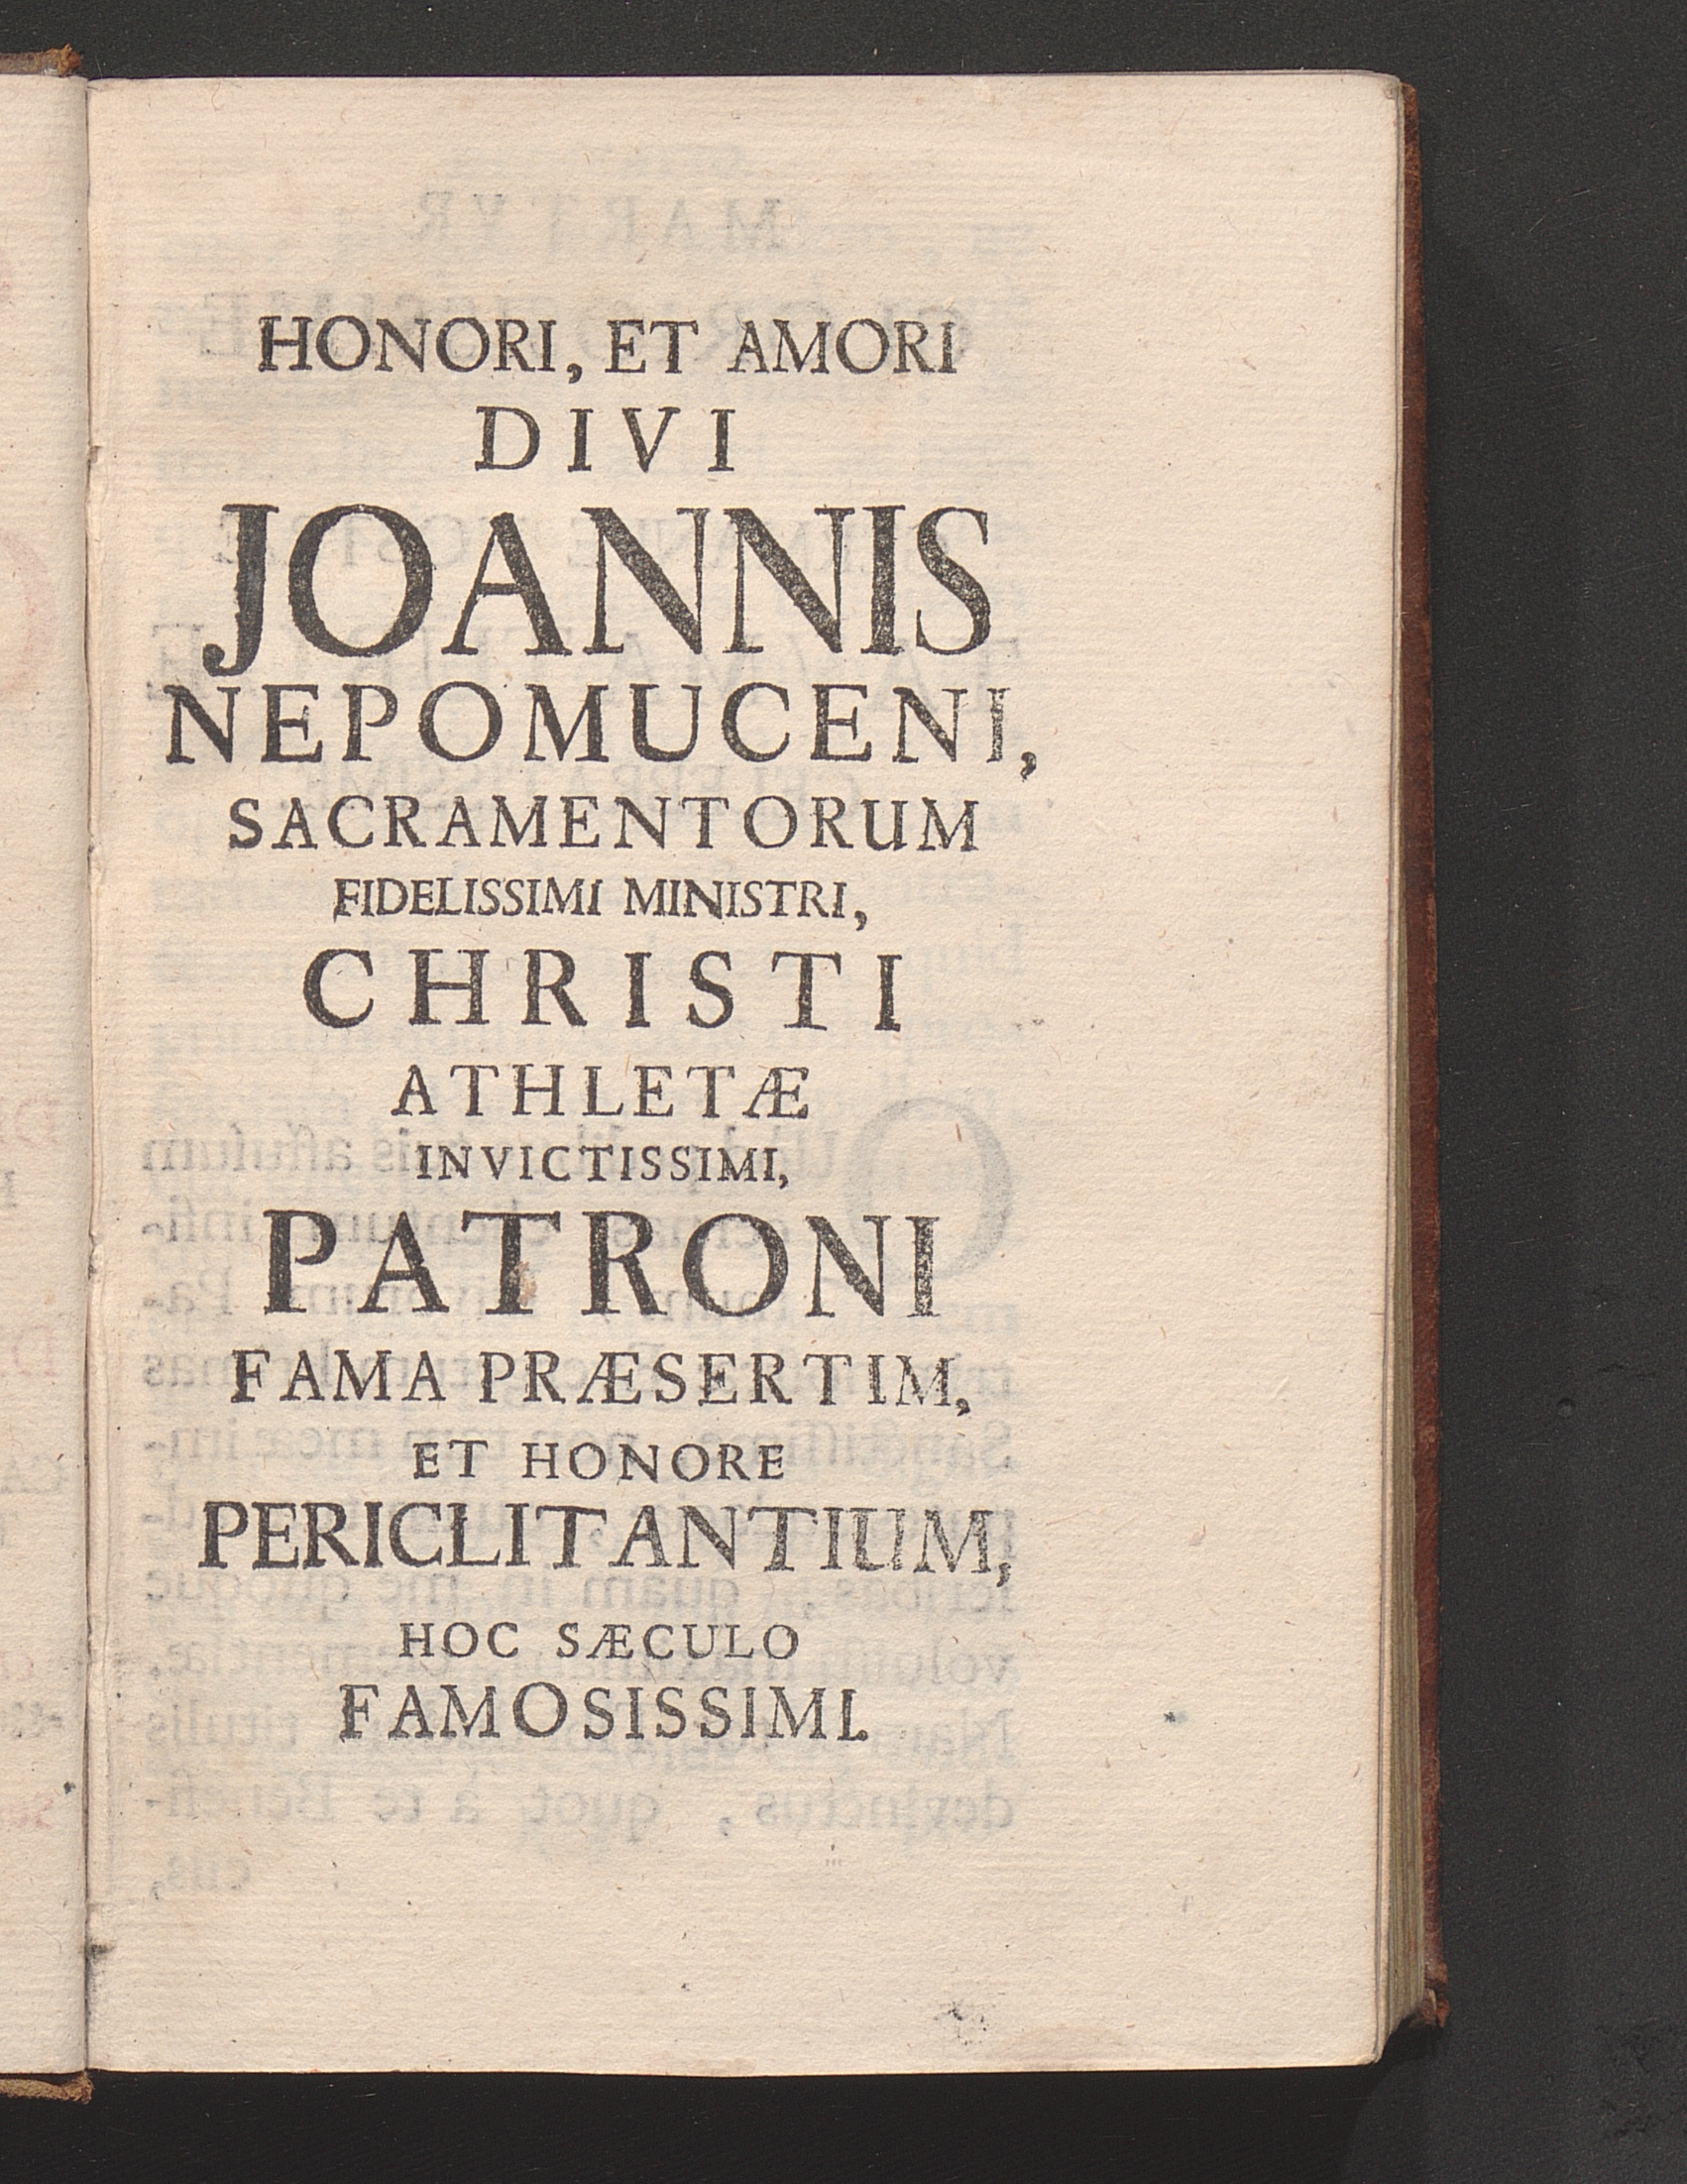 HONORI, ET AMORI
DIVI
JOANNIS
NEPOMUCENI,
SACRAMENTORUM
FIDELISSIMI MINISTRI,
CHRISTI
ATHLETÆ
INVICTISSIMI,
PATRONI
FAMA PRÆSERTIM,
ET HONORE
PERICLITANTIUM,
HOC SÆCULO
FAMOSISSIMI.